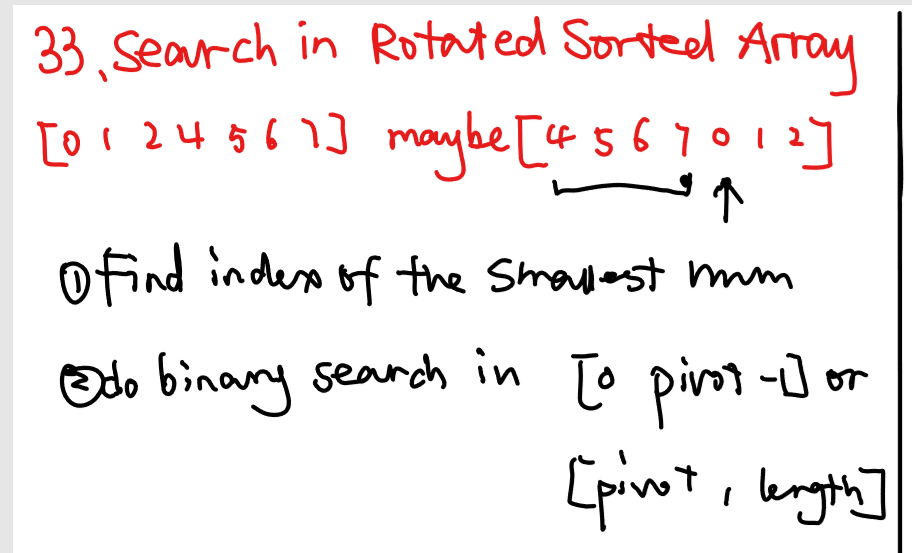 33. Search in Rotated Sorted Array
[0 1 2 4 5 6 7] maybe [4 5 6 7 0 1 2]
① Find index of the smallest num
② do binary search in [0 pivot -1] or
[pivot , length]